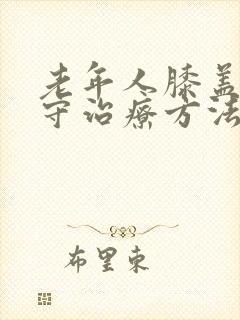 老年人膝盖
守治疗方法
布里束